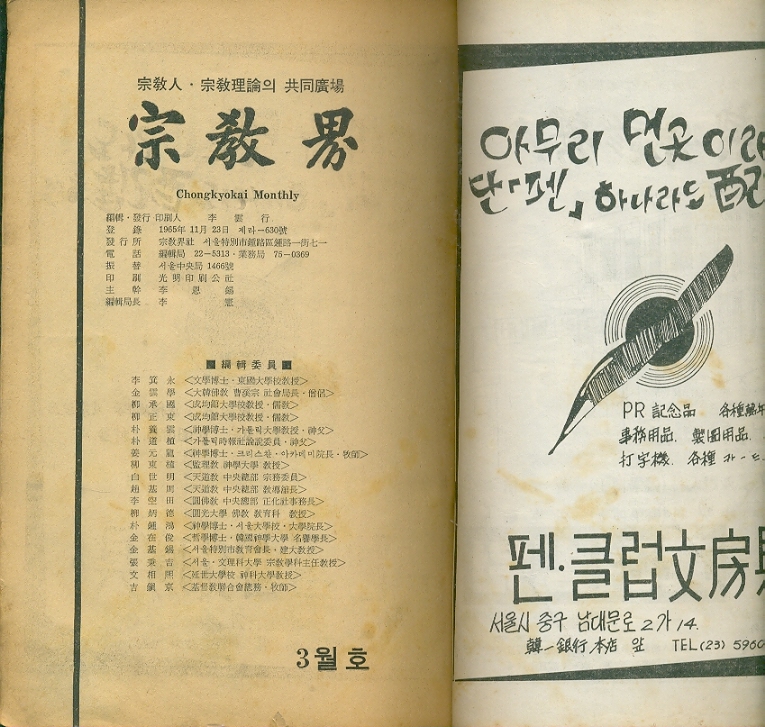 宗敎人·宗敎理論의 共同廣場
宗敎界
Chongkyokai Monthly
編輯·發行 印刷人 李雲行
登錄 1965年 11月 23日 제라-630號
發行所 宗敎界社 서울特別市鍾路區鍾路一街七一
電話 編輯局 22-5313·業務局 75-0369
振替 서울中央局 1466號
印刷 光明印刷公社
主幹 李恩錫
編輯局長 李憲
編輯委員
李箕永 <文學博士·東國大學校敎授>
金雲學 <大韓佛敎 曹溪宗 社會局長·僧侶>
柳承國 <成均館大學校敎授·儒敎>
柳正東 <成均館大學校敎授·儒敎>
朴養雲 <神學博士·가톨릭大學敎授·神父>
朴道植 <가톨릭時報社論說委員·神父>
姜元龍 <神學博士·크리스챤·아카데미院長·牧師>
柳東植 <監理敎 神學大學 敎授>
白世明 <天道敎 中央總部 宗務委員>
趙基周 <天道敎 中央總部 敎導館長>
李空田 <圓佛敎 中央總部 正化社事務長>
柳炳德 <圓光大學 佛敎 敎育科 敎授>
朴鍾鴻 <神學博士·서울大學校·大學院長>
金在俊 <哲學博士·韓國神學大學 名譽學長>
金基錫 <서울特別市敎育會長·建大敎授>
張秉吉 <서울·文理科大學 宗敎學科主任敎授>
文相熙 <延世大學校 神科大學敎授>
吉鎭京 <基督敎聯合會總務·牧師>
3월호
아무리 먼곳이라
단「펜」하나라도 配
PR 記念品 各種萬年
事務用品. 製圖用品.
打字機. 各種 카-드
펜·클럽文房具
서울시 중구 남대문로 2가 14.
韓一銀行本店 앞 TEL(23) 5960